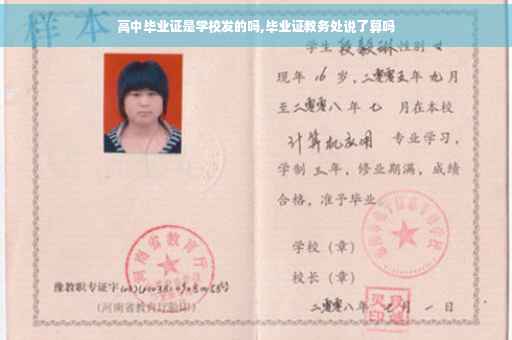 高中毕业证是学校发的吗,毕业证教务处说了算吗
样本
学生段毅琳性别女
现年16岁，二零零五年九月
至二零零八年七月在本校
计算机应用专业学习，
学制三年，修业期满，成绩
合格，准予毕业。
学校（章）
校长（章）
二零零八年七月一日
河南省教育厅
豫教职专证字
（河南省教育厅验印）